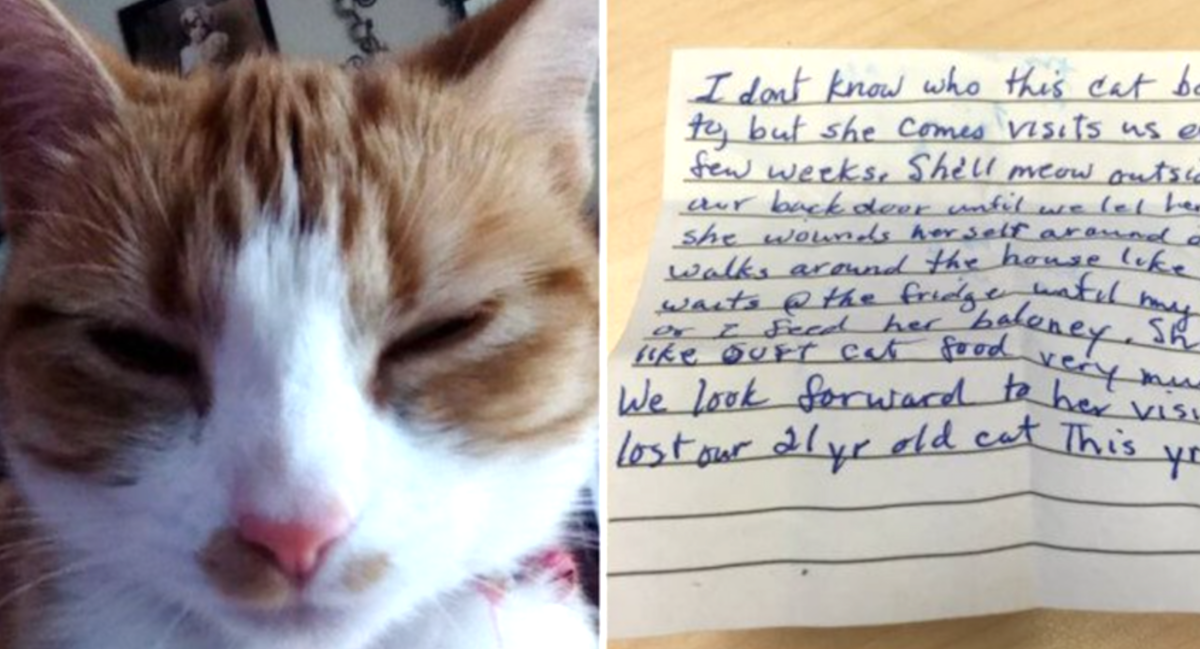 I dont know who this cat be
to, but she comes visits us e
few weeks. She'll meow outsi
our back door until we let he
she wounds herself around o
walks around the house like
waits @ the fridge until my
or I feed her baloney. Sh
like OURT cat food very mu
We look forward to her visi
lost our 21 yr old cat This yr